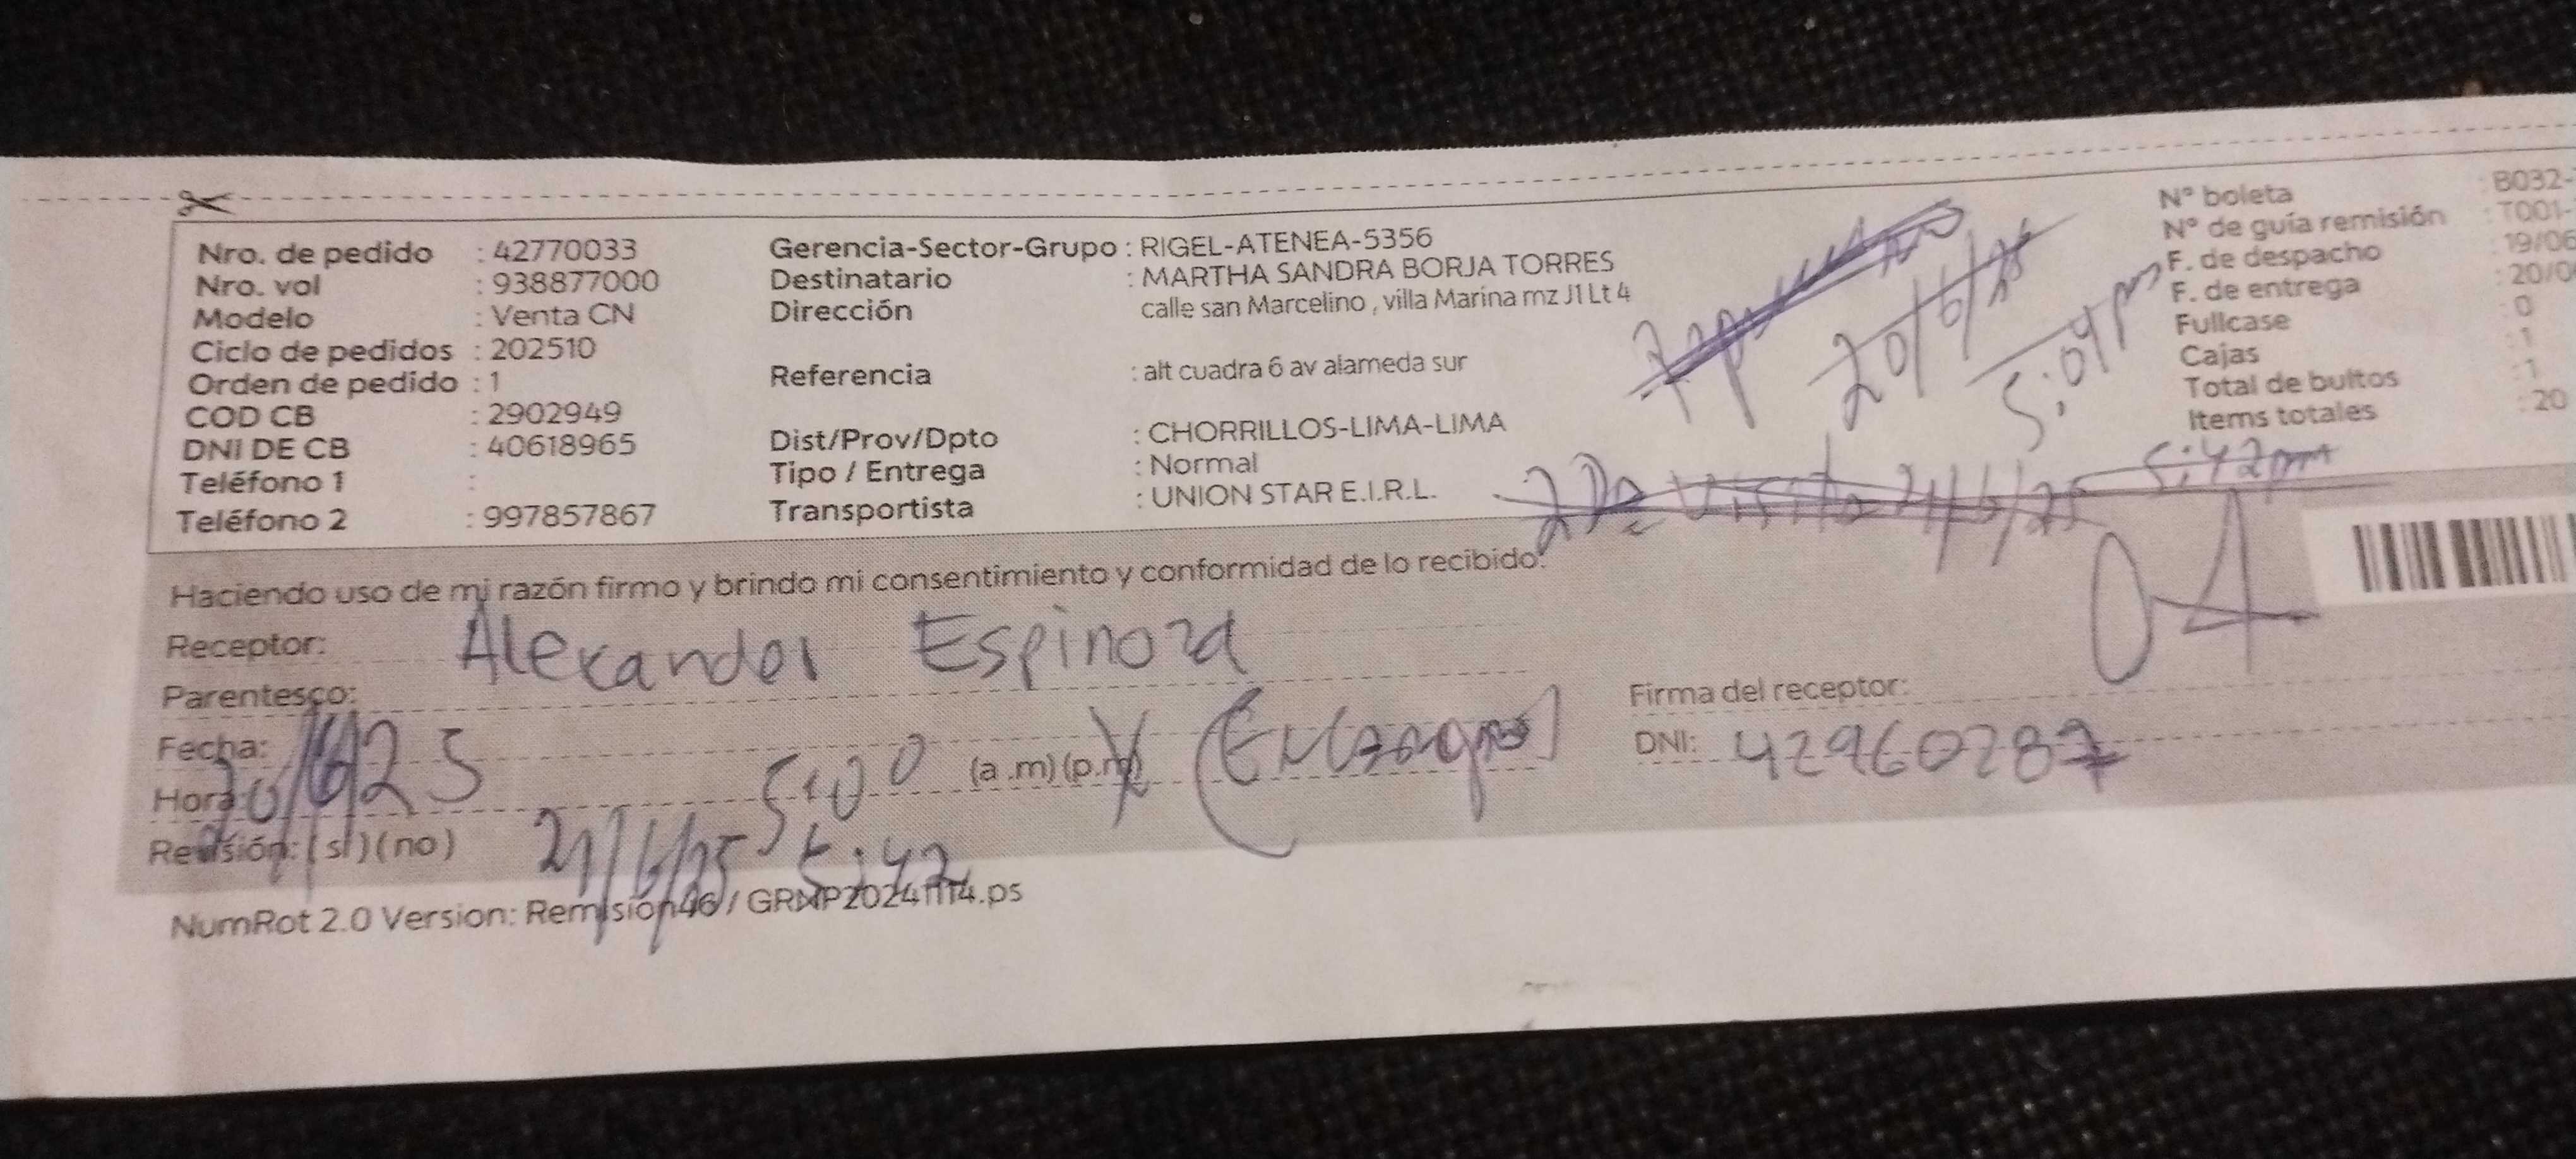 Nro. de pedido : 42770033
Nro. vol : 938877000
Modelo : Venta CN
Ciclo de pedidos : 202510
Orden de pedido : 1
COD CB : 2902949
DNI DE CB : 40618965
Teléfono 1 :
Teléfono 2 : 997857867
Gerencia-Sector-Grupo : RIGEL-ATENEA-5356
Destinatario : MARTHA SANDRA BORJA TORRES
Dirección calle san Marcelino , villa Marina mz J1 Lt 4
Referencia : alt cuadra 6 av alameda sur
Dist/Prov/Dpto : CHORRILLOS-LIMA-LIMA
Tipo / Entrega : Normal
Transportista : UNION STAR E.I.R.L.
20/6/25
5:04 pm
2Da Visita 21/6/25 5:42pm
N° boleta : B032-
N° de guía remisión : T001-
F. de despacho : 19/06
F. de entrega : 20/0
Fullcase : 0
Cajas : 1
Total de bultos : 1
Items totales : 20
04
Haciendo uso de mi razón firmo y brindo mi consentimiento y conformidad de lo recibido.
Receptor: Alexander Espinoza
Parentesco:
Fecha: 20/6/25
Hora: 5:00 (a .m) (p.m)
Revisión: ( si ) ( no ) 21/6/25 5:42
Firma del receptor:
DNI: 42960287
NumRot 2.0 Version: Remisión46 / GRMP20241114.ps